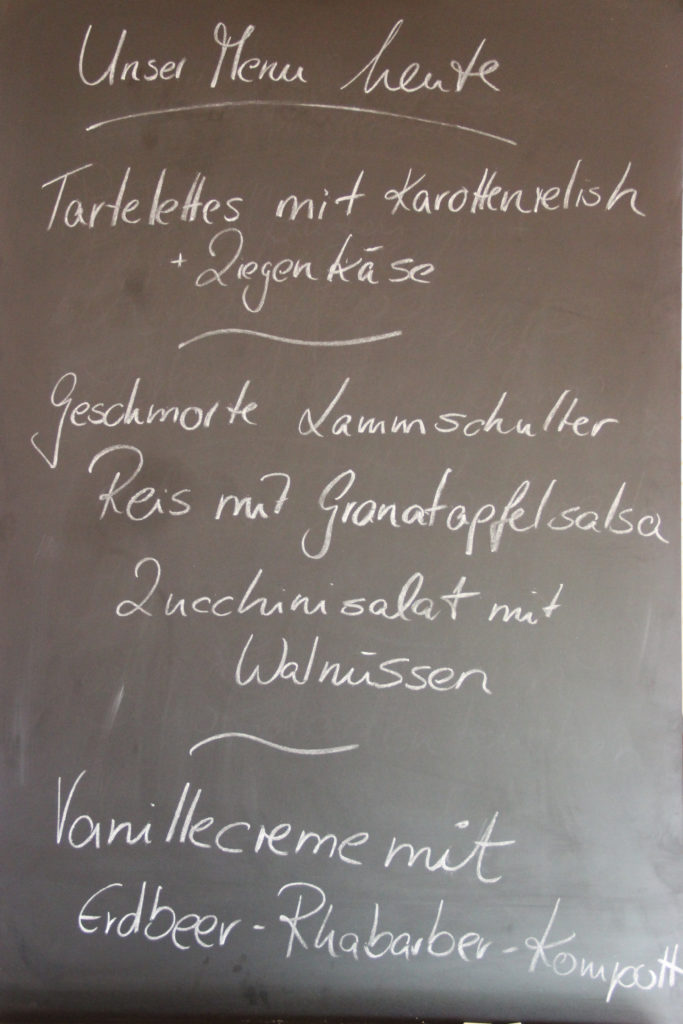 Unser Menu heute
Tartelettes mit Karottenrelish
+ Ziegenkäse
Geschmorte Lammschulter
Reis mit Granatapfelsalsa
Zucchinisalat mit
Walnüssen
Vanillecreme mit
Erdbeer-Rhabarber-Kompott